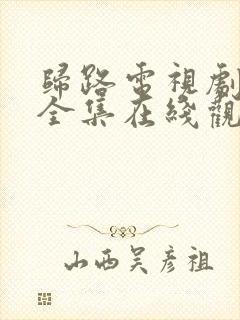 歸路電視劇
全集在綫觀
山西吴彦祖